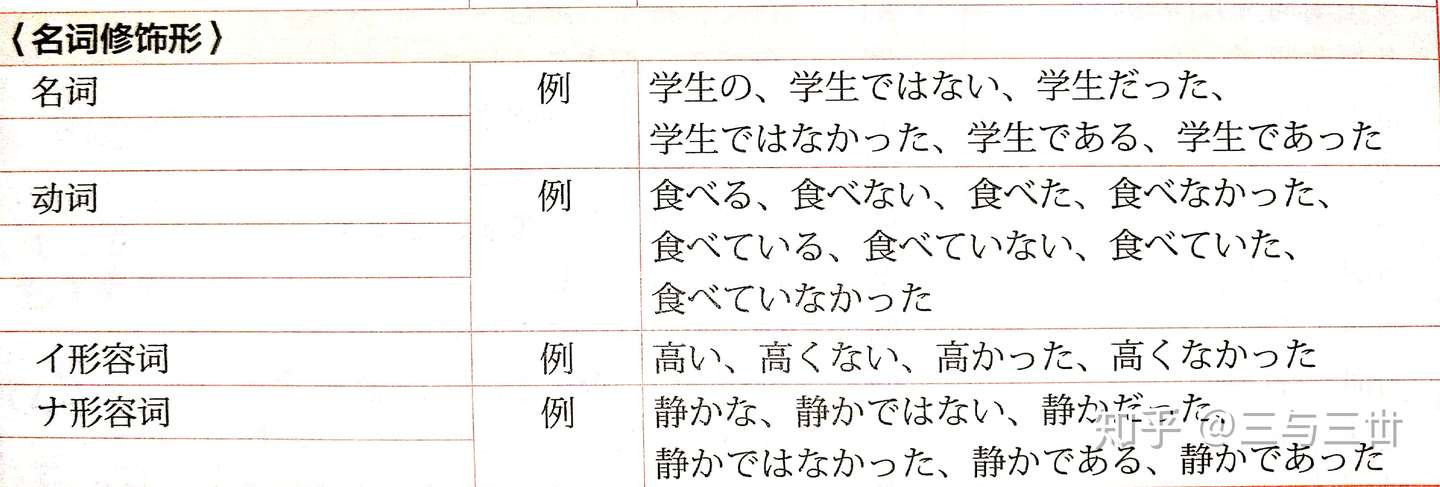 〈名词修饰形〉
名词 例 学生の、学生ではない、学生だった、
学生ではなかった、学生である、学生であった
动词 例 食べる、食べない、食べた、食べなかった、
食べている、食べていない、食べていた、
食べていなかった
イ形容词 例 高い、高くない、高かった、高くなかった
ナ形容词 例 静かな、静かではない、静かだった、
知乎 @三与三丗
静かではなかった、静かである、静かであった